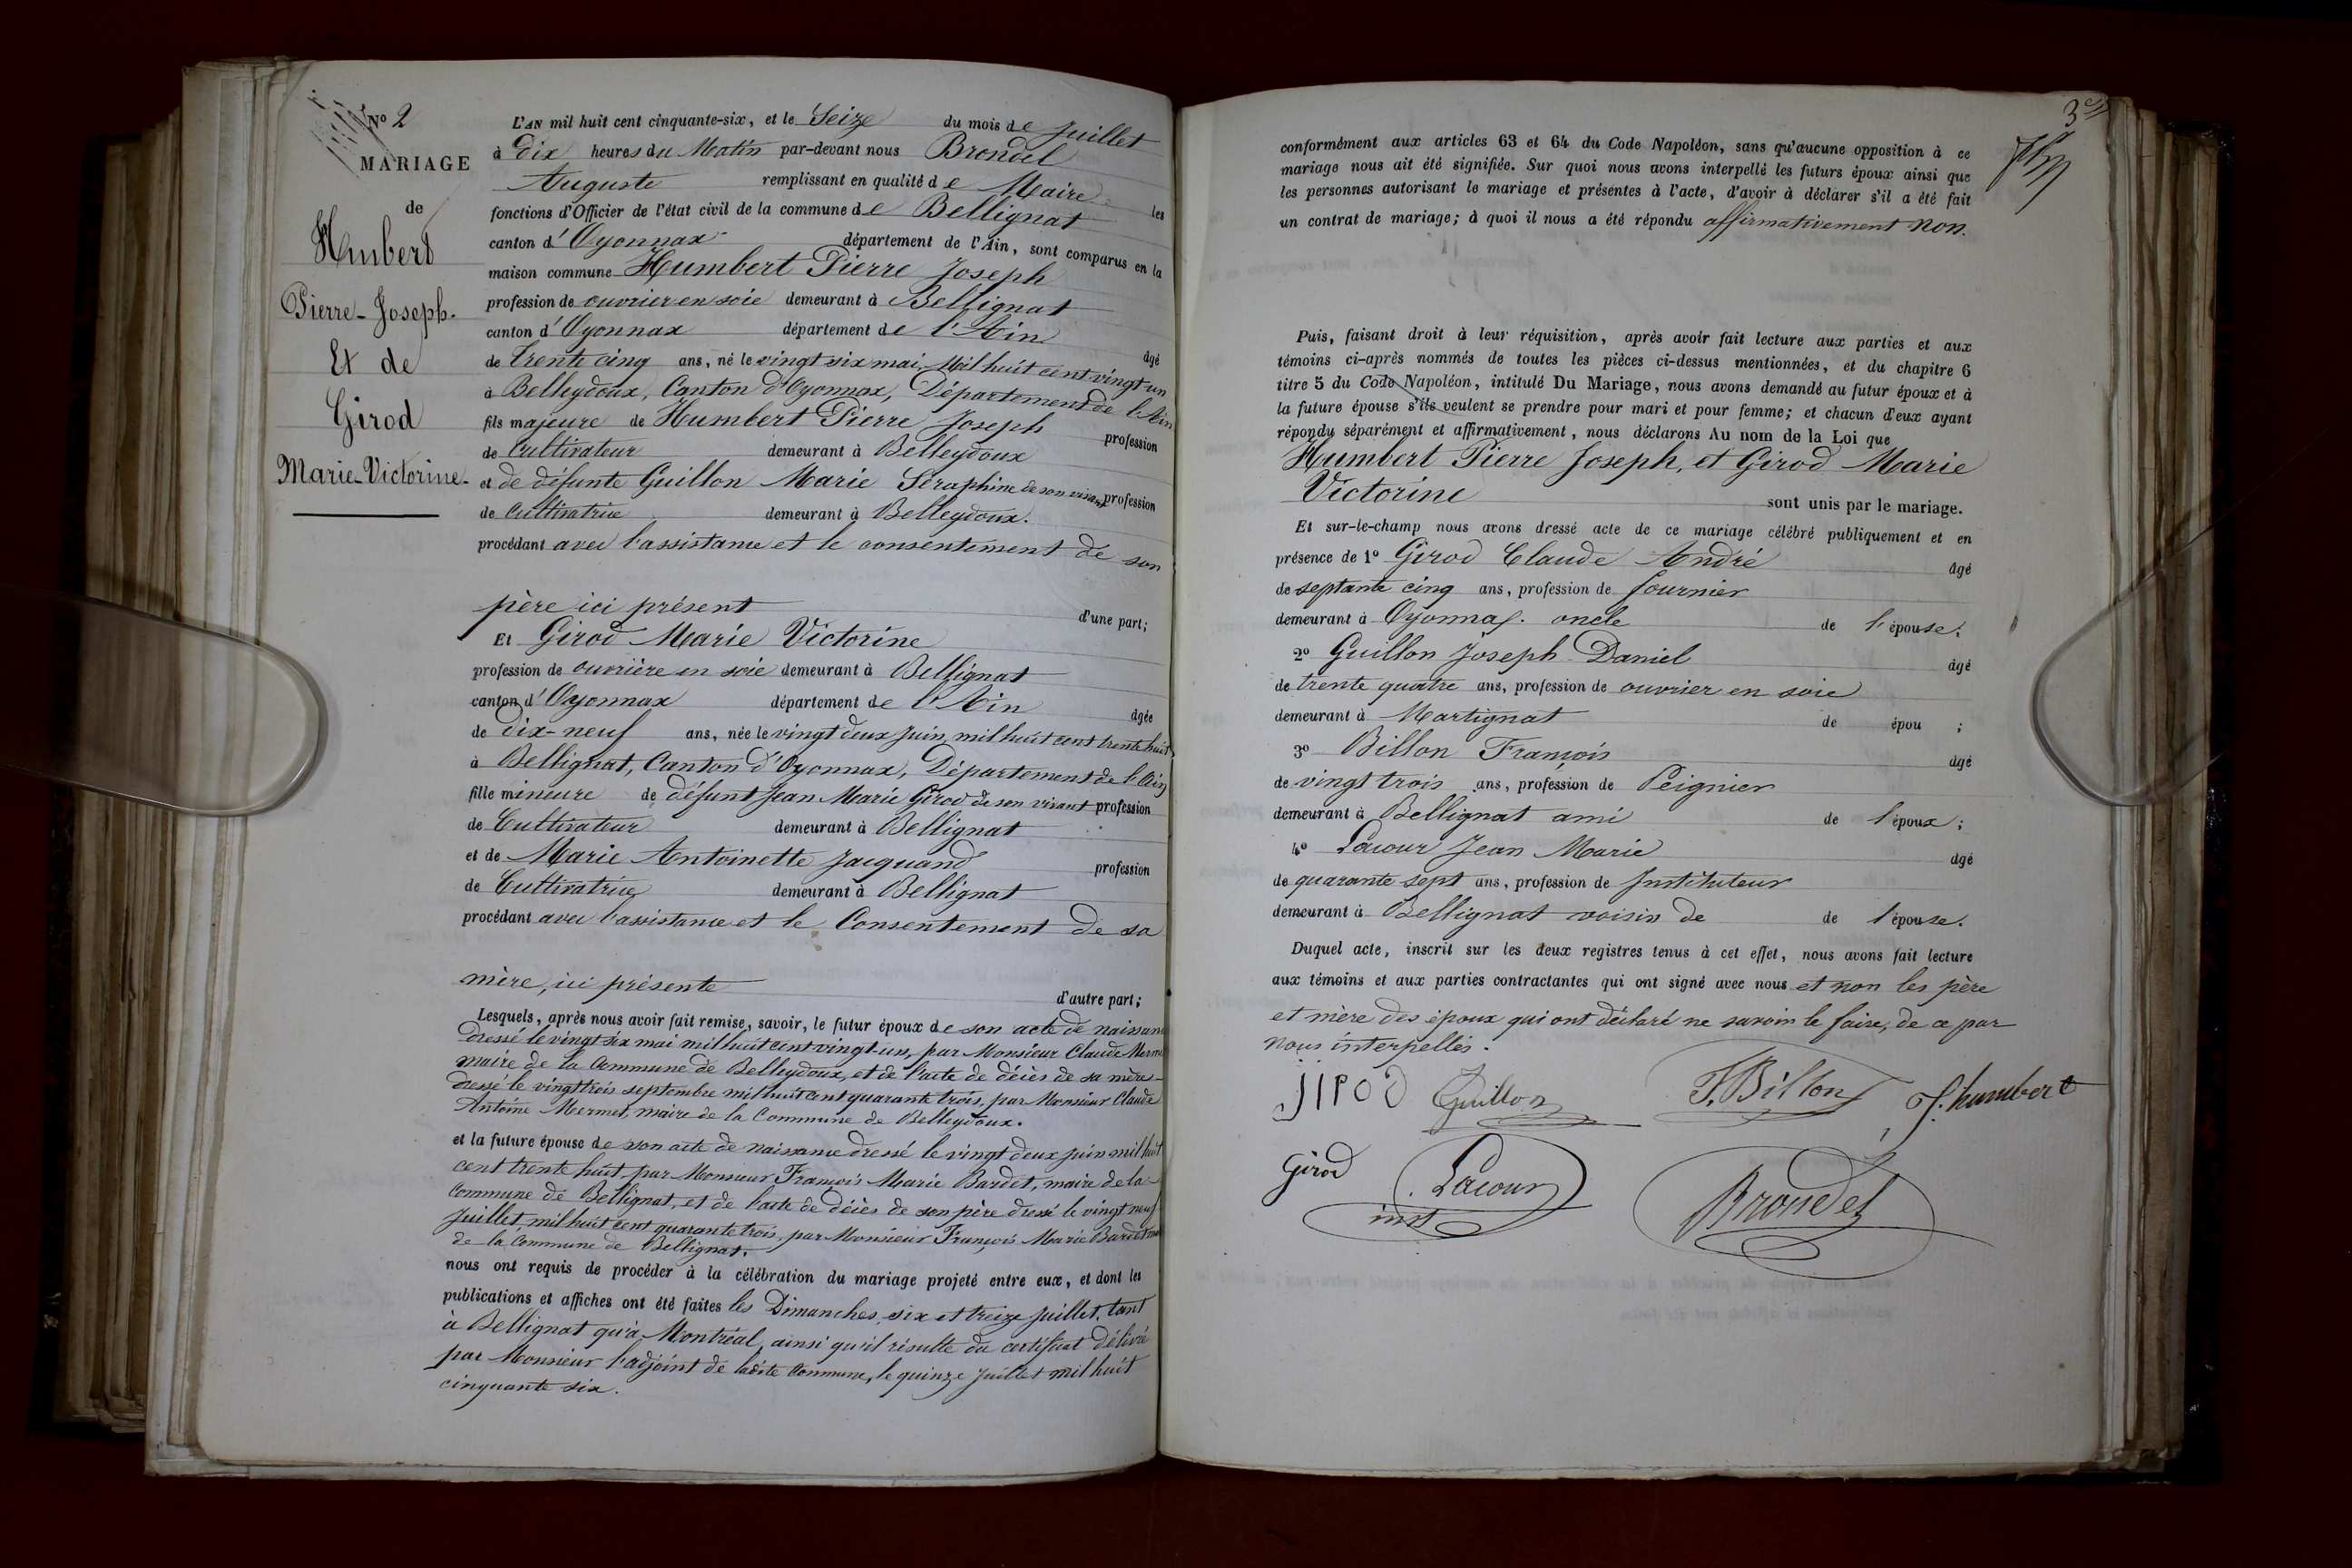 Nº 2
MARIAGE
de
Humbert
Pierre-Joseph.
Et de
Girod
Marie-Victorine.
L'AN mil huit cent cinquante-six, et le Seize du mois de Juillet
à Dix heures du Matin par-devant nous Brondel
Auguste remplissant en qualité de Maire les
fonctions d'Officier de l'état civil de la commune de Bellignat
canton d'Oyonnax département de l'Ain, sont comparus en la
maison commune Humbert Pierre Joseph
profession de ouvrier en soie demeurant à Bellignat
canton d'Oyonnax département de l'Ain
âgé
de trente cinq ans, né le vingt six mai, Mil huit cent vingt-un
à Belleydoux, Canton d'Oyonnax, Département de l'Ain
fils majeure de Humbert Pierre Joseph profession
de Cultivateur demeurant à Belleydoux
et de défunte Guillon Marie Séraphine de son vivant profession
de Cultivatrice demeurant à Belleydoux.
procédant avec l'assistance et le consentement de son
père ici présent d'une part;
Et Girod Marie Victorine
profession de ouvrière en soie demeurant à Bellignat
canton d'Oyonnax département de l'Ain âgée
de dix-neuf ans, née le vingt deux Juin, mil huit cent trente huit
à Bellignat, Canton d'Oyonnax, Département de l'Ain
fille mineure de défunt Jean Marie Girod de son vivant profession
de Cultivateur demeurant à Bellignat
et de Marie Antoinette Jacquand profession
de Cultivatrice demeurant à Bellignat
procédant avec l'assistance et le Consentement de sa
mère, ici présente d'autre part;
Lesquels, après nous avoir fait remise, savoir, le futur époux de son acte de naissance
dressé le vingt six mai mil huit cent vingt-un, par Monsieur Claude
maire de la Commune de Belleydoux, et de l'acte de décès de sa mère
dressé le vingt trois septembre mil huit cent quarante trois, par Monsieur Claude
Antoine Mermet, maire de la Commune de Belleydoux.
et la future épouse de son acte de naissance dressé le vingt deux juin mil huit
cent trente huit, par Monsieur François Marie Bardet, maire de la
Commune de Bellignat, et de l'acte de décès de son père dressé le vingt neuf
Juillet, mil huit cent quarante trois, par Monsieur François Marie Bardet
de la Commune de Bellignat.
nous ont requis de procéder à la célébration du mariage projeté entre eux, et dont les
publications et affiches ont été faites les Dimanches, six et treize Juillet, tant
à Bellignat qu'à Montréal, ainsi qu'il résulte du certificat délivré
par Monsieur l'adjoint de ladite Commune, le quinze Juillet mil huit
cinquante six.
3e
conformément aux articles 63 et 64 du Code Napoléon, sans qu'aucune opposition à ce
mariage nous ait été signifiée. Sur quoi nous avons interpellé les futurs époux ainsi que
les personnes autorisant le mariage et présentes à l'acte, d'avoir à déclarer s'il a été fait
un contrat de mariage; à quoi il nous a été répondu affirmativement non.
Puis, faisant droit à leur réquisition, après avoir fait lecture aux parties et aux
témoins ci-après nommés de toutes les pièces ci-dessus mentionnées, et du chapitre 6
titre 5 du Code Napoléon, intitulé Du Mariage, nous avons demandé au futur époux et à
la future épouse s'ils veulent se prendre pour mari et pour femme; et chacun d'eux ayant
répondu séparément et affirmativement, nous déclarons Au nom de la Loi que
Humbert Pierre Joseph, et Girod Marie
Victorine sont unis par le mariage.
Et sur-le-champ nous avons dressé acte de ce mariage célébré publiquement et en
présence de 1º Girod Claude André âgé
de septante cinq ans, profession de fournier
demeurant à Oyonnax. oncle de l'épouse;
2º Guillon Joseph Daniel âgé
de trente quatre ans, profession de ouvrier en soie
demeurant à Martignat de épou ;
3º Billon François âgé
de vingt trois ans, profession de Peignier
demeurant à Bellignat ami de l'époux;
4º Lacour Jean Marie âgé
de quarante sept ans, profession de Instituteur
demeurant à Bellignat voisin de de l'épouse.
Duquel acte, inscrit sur les deux registres tenus à cet effet, nous avons fait lecture
aux témoins et aux parties contractantes qui ont signé avec nous et non les père
et mère des époux qui ont déclaré ne savoir le faire, de ce par
nous interpellés.
girod Guillon F. Billon J. humbert
Girod Lacour
inst
Brondel